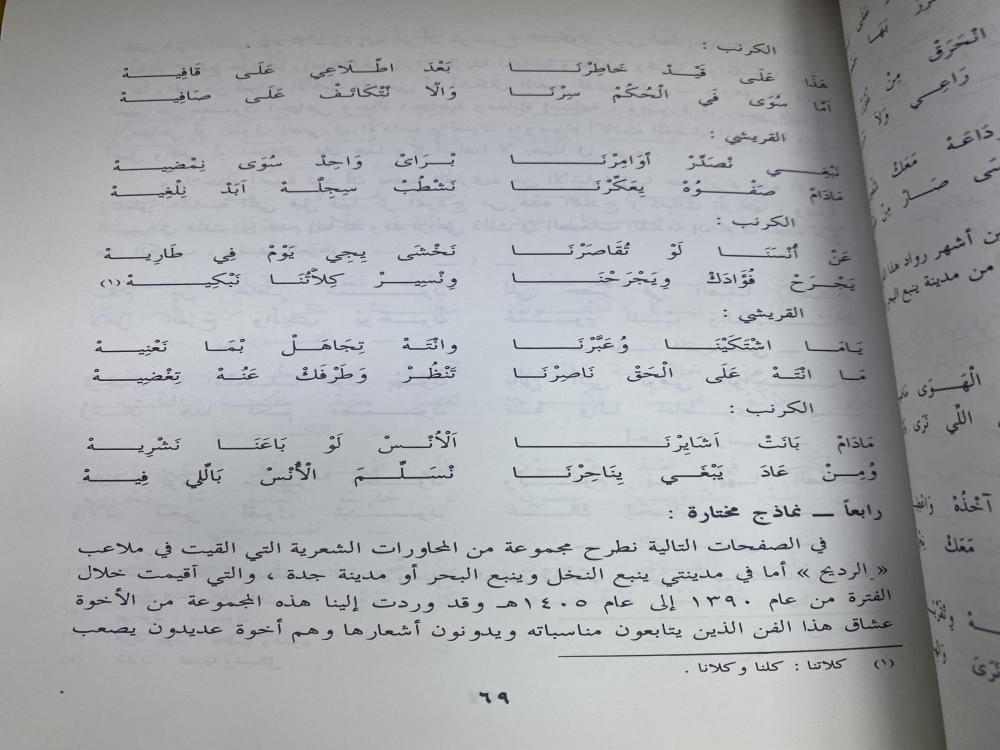 الكرنب :
هَذَا عَلَى قَيْدْ خَاطِرْنَا بَعْدَ اطْلَاعِي عَلَى قَافِيهْ
آمَّا سُوَى فَي الْحُكُمْ سِرْنَا وَالَّا نْتْكَاتَفْ عَلَى صَافِيهْ
القريشي :
نَبْغِي نْصَدِّرْ أوَامِرْنَا بْرَايْ وَاحِدْ سُوَى نِمْضِيهْ
مَادَامْ صَفْوُهْ يِعَكِّرْنَا نَشْطُبْ سِجِلَّهْ ابَدْ نِلْغِيهْ
الكرنب :
عَنْ أُنْسَنَا لَوْ تُقَاصَرْنَا نَخْشَى يِجِي يَوْمْ فِي طَارِيهْ
يَجْرَحْ فُؤَادَكْ وِيَجْرَحْنَا وِنْسِيرْ كِلَاتْنَا نَبْكِيهْ (١)
القريشي :
يَامَا اشْتَكَيْنَا وُعَبَّرْنَا وِانْتَهْ تِجَاهَلْ بْمَا نَعْنِيهْ
مَا انْتَهْ عَلَى الْحَقْ نَاصِرْنَا تَنْظُرْ وَطَرْفَكْ عَنُهْ تِغْضِيهْ
الكرنب :
مَادَامْ بَانَتْ اَشَايِرْنَا اَلْأُنْسْ لَوْ بَاعَنَا نَشْرِيهْ
وُمِنْ عَادَ يَبْغَي يِنَاحِرْنَا نْسَلِّمَ الْأُنْسْ بَاللِّي فِيهْ
رابعاً ــ نماذج مختارة :
في الصفحات التالية نطرح مجموعة من المحاورات الشعرية التي القيت في ملاعب
« الرديح » أما في مدينتي ينبع النخل وينبع البحر أو مدينة جدة ، والتي آقيمت خلال
الفترة من عام ١٣٩٠ إلى عام ١٤٠٥هـ وقد وردت إلينا هذه المجموعة من الأخوة
عشاق هذا الفن الذين يتابعون مناسباته ويدونون أشعارها وهم أخوة عديدون يصعب
(١) كلاتنا : كلنا وكلانا .
٦٩
انْحَرَقْ
رَاعِي
مَعَكْ
من أشهر رواد هذا
من مدينة ينبع البحر
الْهَوَى
اللِّي
آخْذُهْ
مَعَكْ